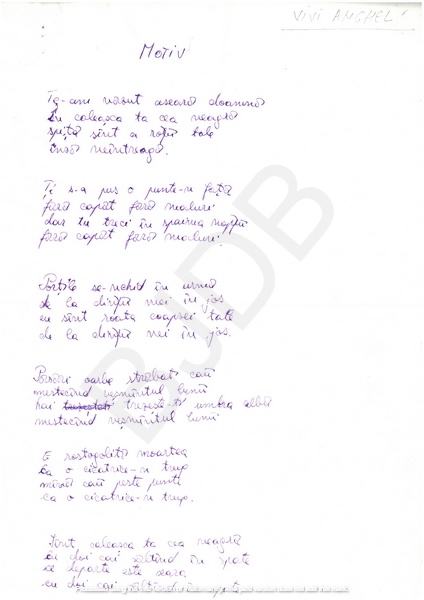 VIVI ANGHEL
MOTIV
Te-am văzut aseară doamnă
în caleașca ta cea neagră
spiță sînt a roții tale
însă neîntreagă.
Ți s-a pus o punte-n față
fără capăt fără maluri
dar tu treci în spaima nopții
fără capăt fără maluri.
Porțile se-nchid în urmă
de la dinții mei în jos
eu sînt roata coapsei tale
de la dinții mei în jos.
Păsări oarbe străbat caii
mestecînd nesfîrșitul lunii
hai trezește-ți umbra albă
mestecînd nesfîrșitul lunii
E rostogolită moartea
ca o cicatrice-n trup
mînă caii peste punte
ca o cicatrice-n trup.
Sînt caleașca ta cea neagră
cu doi cai săltînd în spate
ce departe este seara
cu doi cai săltînd în spate
BJDB